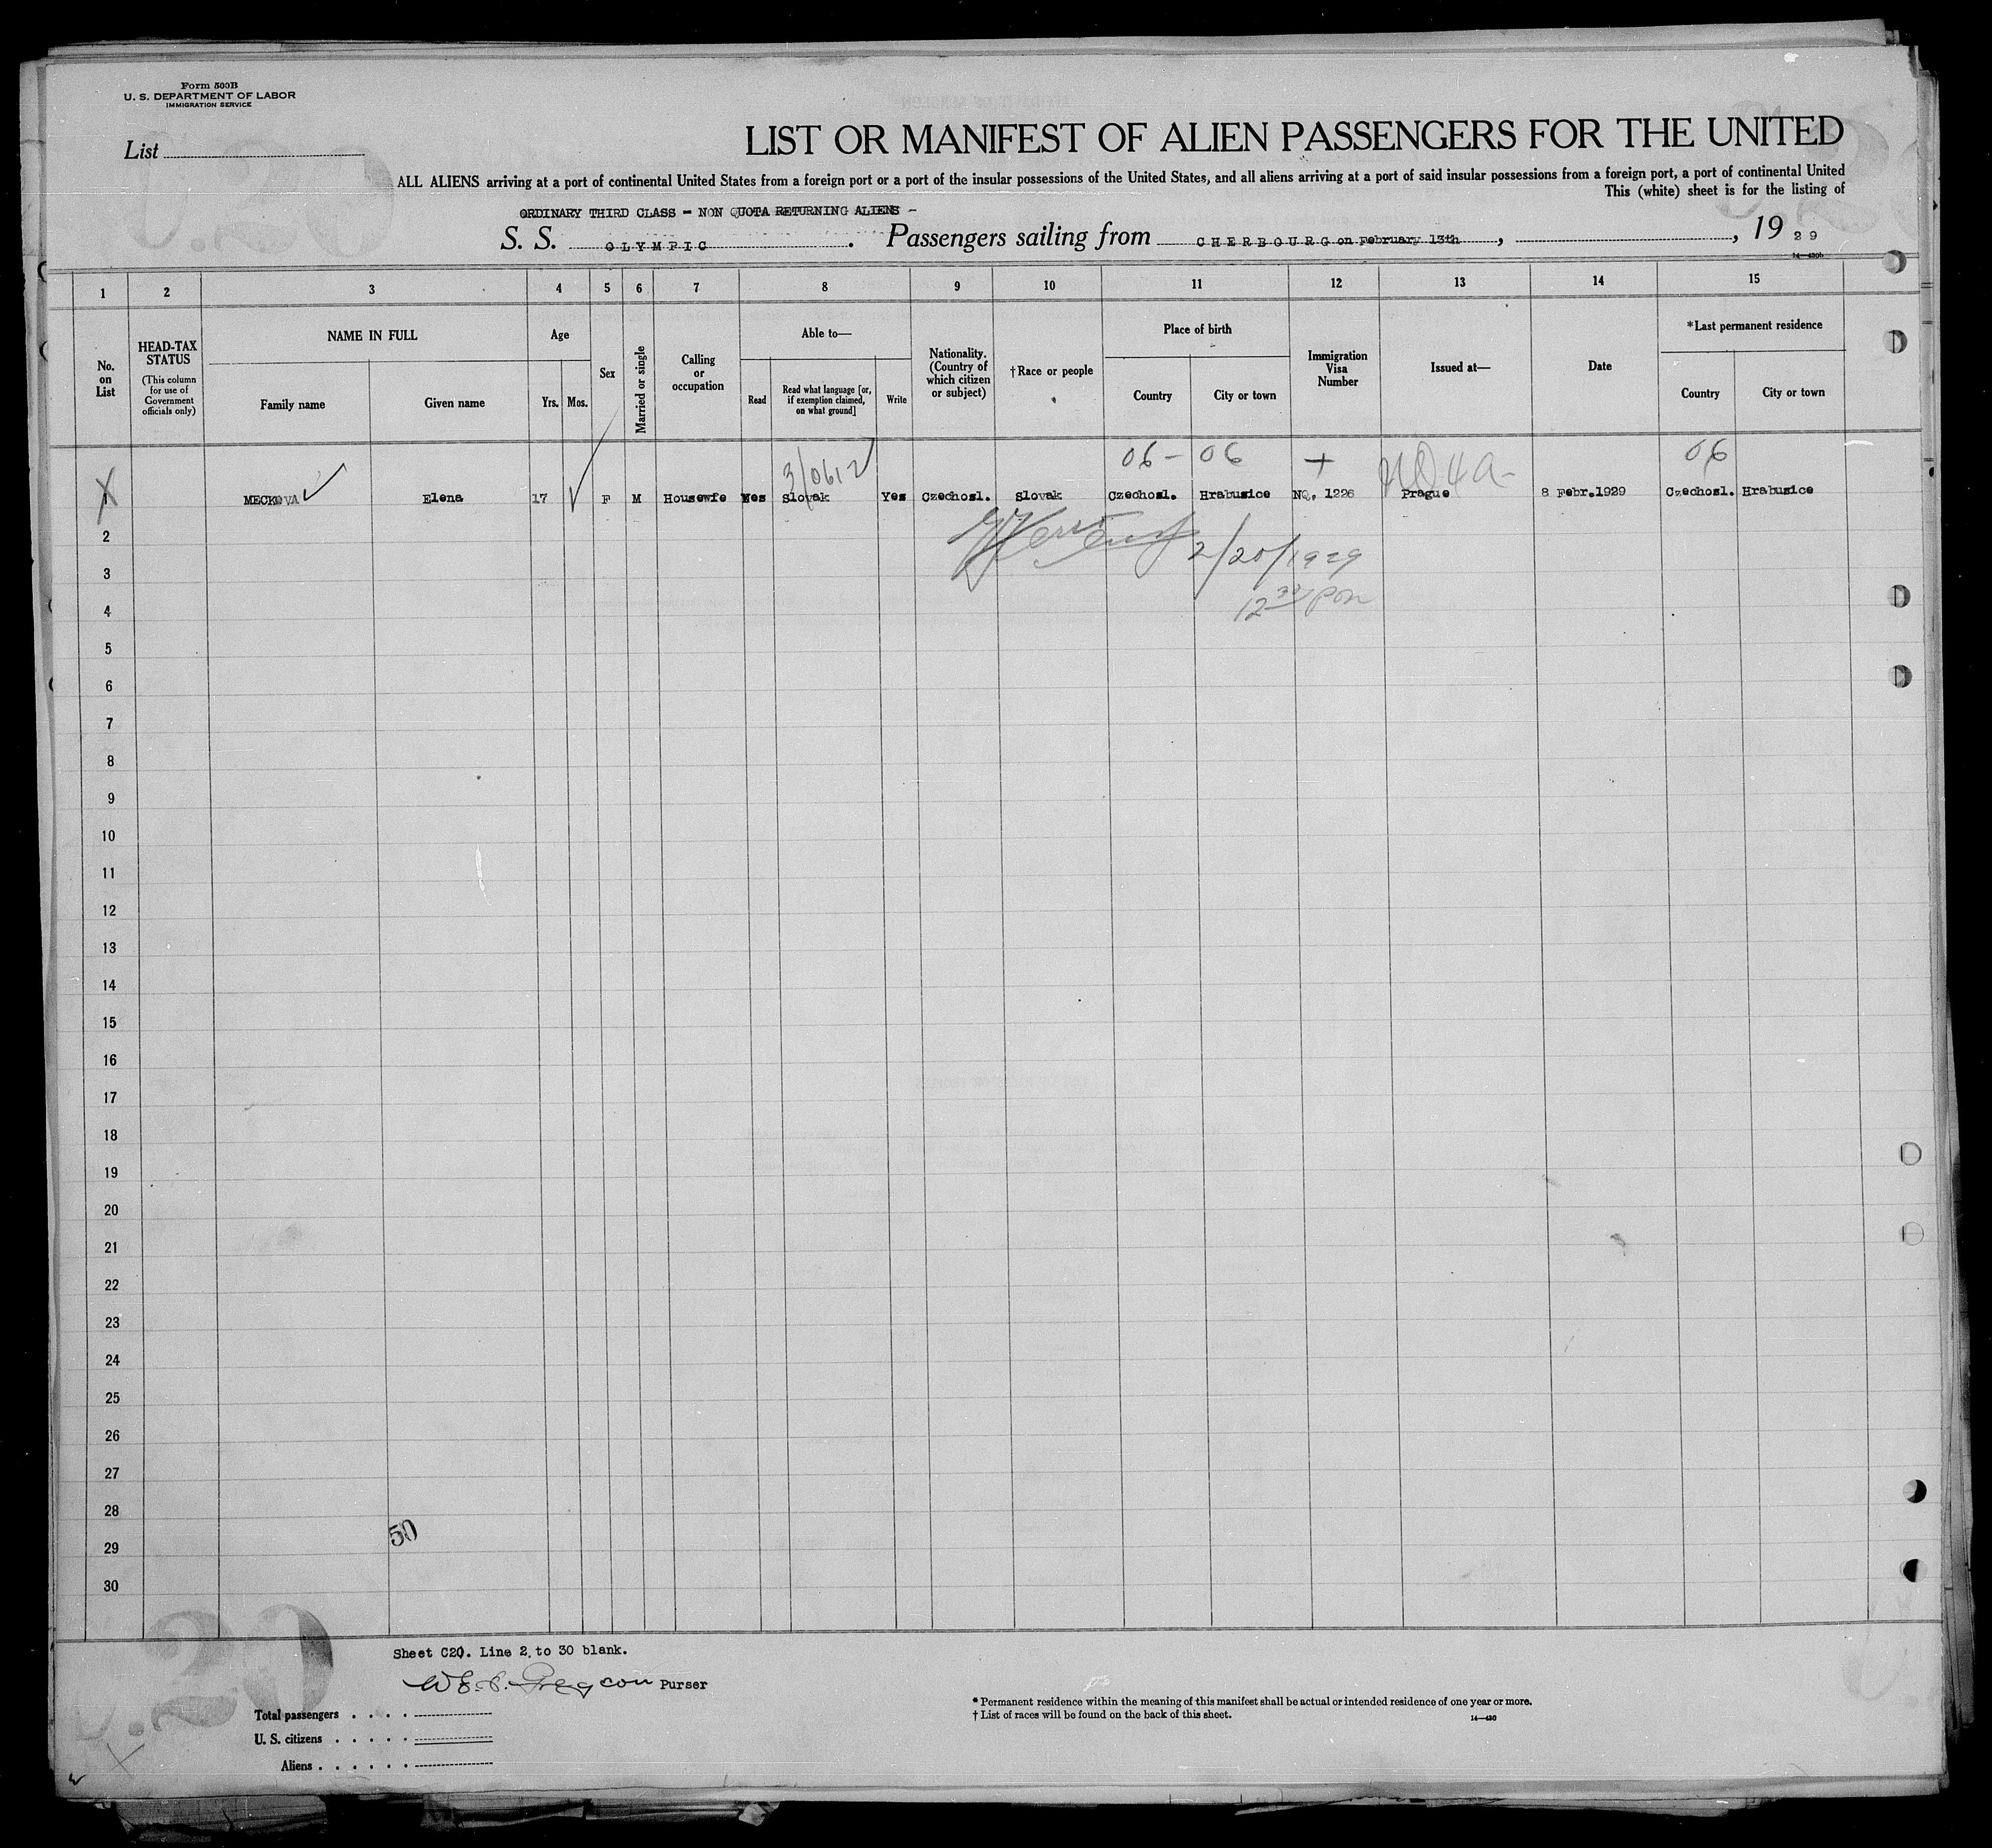 Form 500B
U. S. DEPARTMENT OF LABOR
IMMIGRATION SERVICE
List
LIST OR MANIFEST OF ALIEN PASSENGERS FOR THE UNITED
ALL ALIENS arriving at a port of continental United States from a foreign port or a port of the insular possessions of the United States, and all aliens arriving at a port of said insular possessions from a foreign port, a port of continental United
This (white) sheet is for the listing of
ORDINARY THIRD CLASS - NON QUOTA RETURNING ALIENS -
S. S. OLYMPIC. Passengers sailing from CHERBOURG on February 13th, , 19 29
14—430b
1 2 3 4 5 6 7 8 9 10 11 12 13 14 15
No. on List
HEAD-TAX STATUS
(This column for use of Government officials only)
NAME IN FULL
Family name Given name
Age
Yrs. Mos.
Sex
Married or single
Calling or occupation
Able to—
Read
Read what language [or, if exemption claimed, on what ground]
Write
Nationality. (Country of which citizen or subject)
†Race or people
Place of birth
Country City or town
Immigration Visa Number
Issued at—
Date
*Last permanent residence
Country City or town
06 - 06 + 06
3/0612
1 MECKOVA Elena 17 F M Housewfe Yes Slovak Yes Czechosl. Slovak Czechosl. Hrabusice NQ. 1226 Prague 8 Febr.1929 Czechosl. Hrabusice
2
2/20/1929
3
12 30 pm
4
5
6
7
8
9
10
11
12
13
14
15
16
17
18
19
20
21
22
23
24
25
26
27
28
50
29
30
20
Sheet C20. Line 2 to 30 blank.
Purser
Total passengers . . . .
U. S. citizens . . . . .
Aliens . . . . . .
* Permanent residence within the meaning of this manifest shall be actual or intended residence of one year or more.
† List of races will be found on the back of this sheet.
14—430